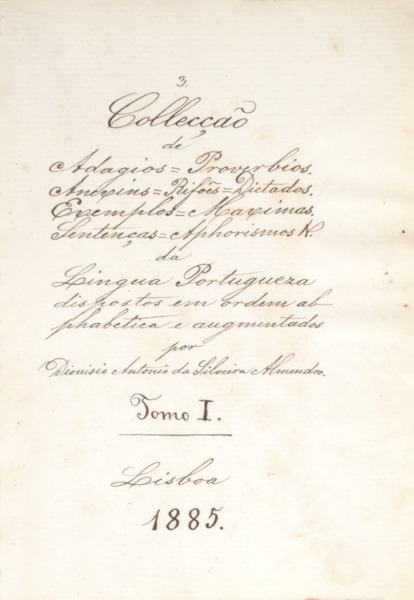 3.
Collecção
de
Adagios = Proverbios.
Anexins = Rifões = Dictados.
Exemplos = Maximas.
Sentenças = Aphorismos &.
da
Lingua Portugueza
dispostos em ordem al
phabetica e augmentados
por
Dionisio Antonio da Silveira Almendro.
Tomo I.
Lisboa
1885.